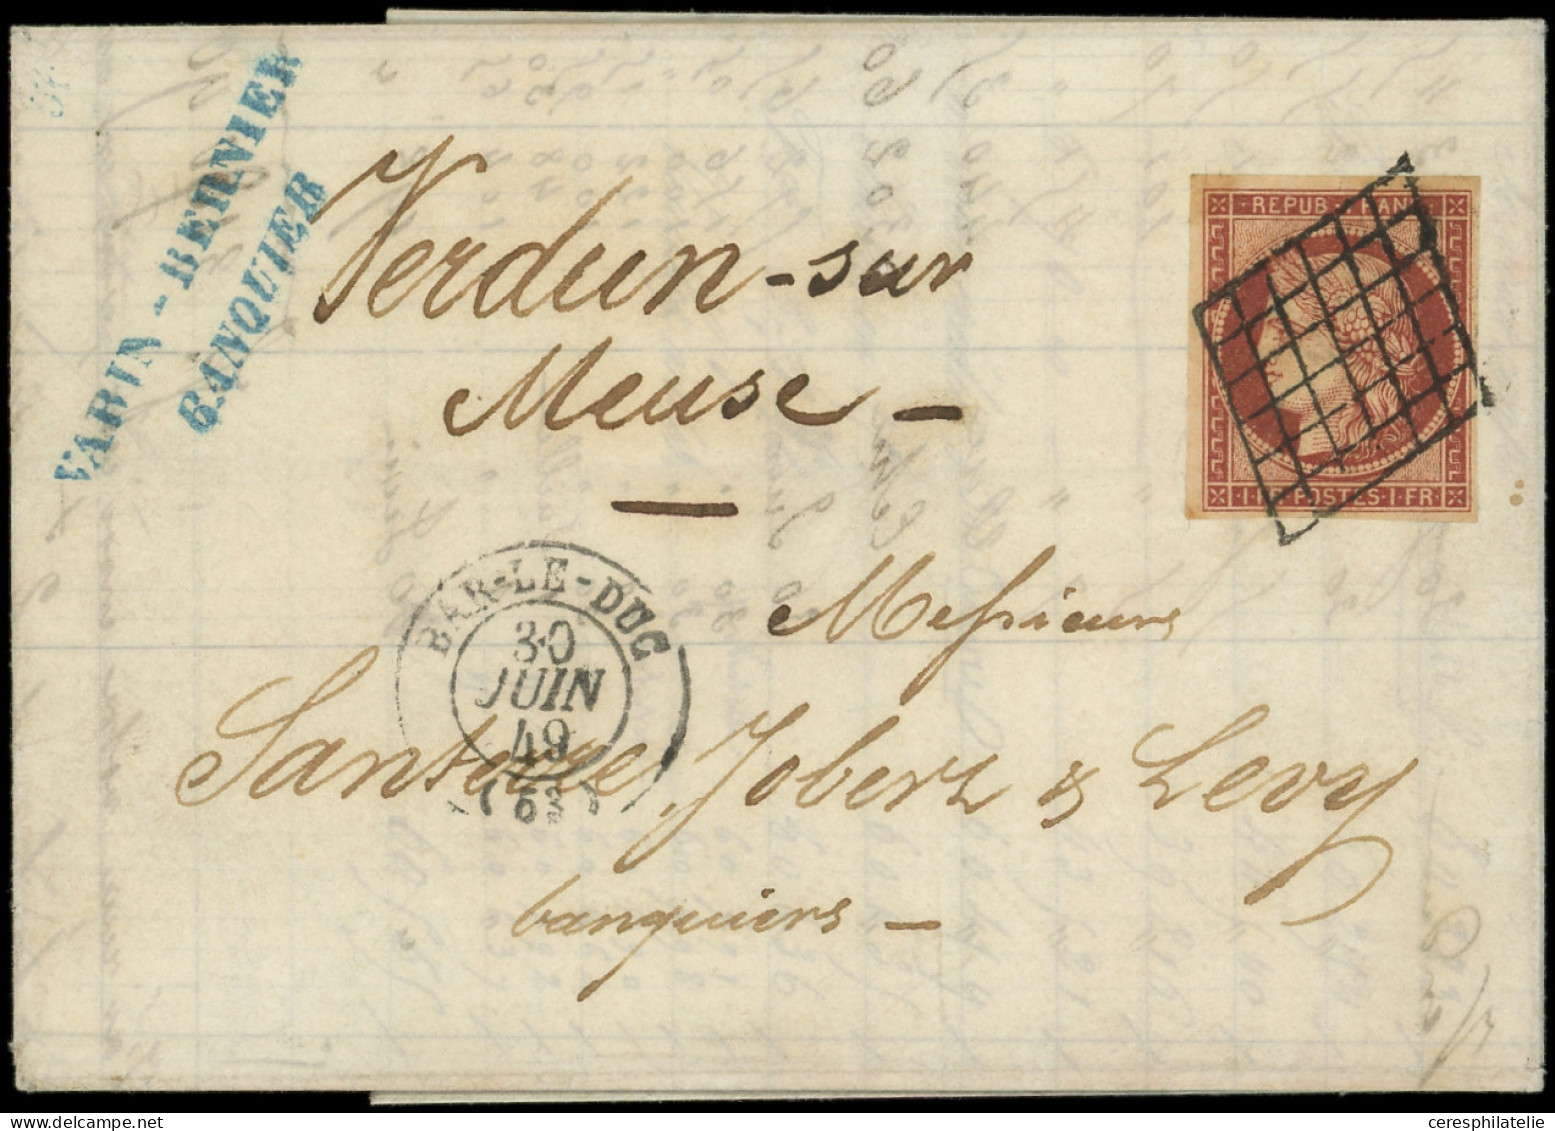 VARIN - BERNIER
BANQUIER
REPUB FRANC
1 FR POSTES 1 FR
Verdun-sur
Meuse —
Messieurs
BAR-LE-DUC
30
JUIN
49
Jobert & Levy
banquiers —
ceresphilatelie/delcampe.net